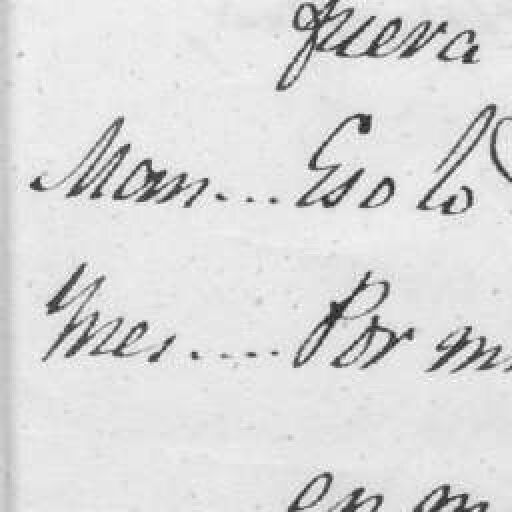 fuera
Man... Eso lo
Ynes.... Por
en